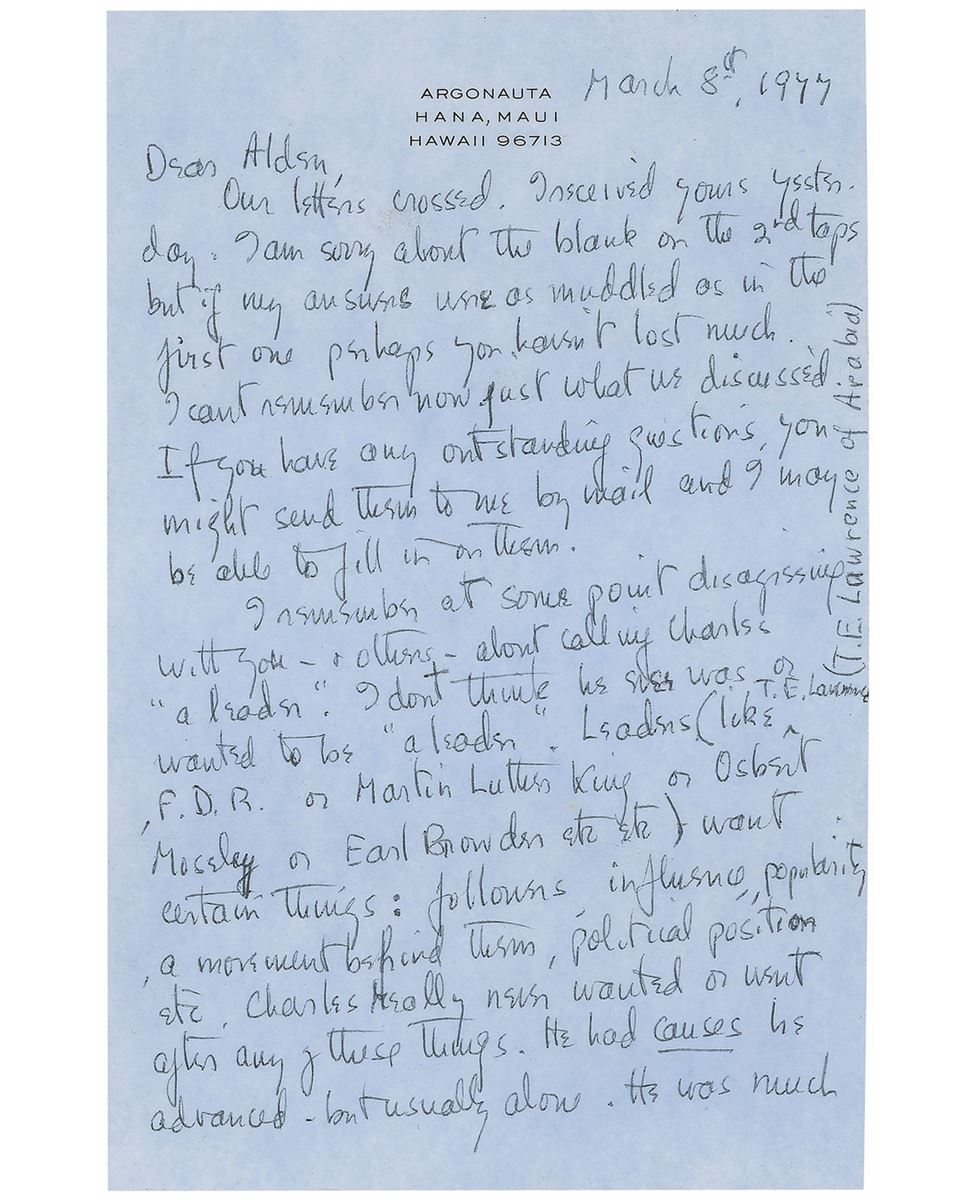 March 8th, 1977
ARGONAUTA
HANA, MAUI
HAWAII 96713
Dear Alden,
Our letters crossed. I received yours yester-
day. I am sorry about the blank on the 2nd tape
but if my answers were as muddled as in the
first one perhaps you haven't lost much.
I cant remember now just what we discussed.
If you have any outstanding questions, you
might send them to me by mail and I may
be able to fill in on them.
I remember at some point disagreeing
with you - & others - about calling Charles
"a leader". I dont think he ever was or
wanted to be "a leader". Leaders (like T.E. Lawrence
, F.D.R. or Martin Luther King or Osbert
Moseley or Earl Browder etc etc) want
certain things: followers influence, popularity,
, a movement behind them, political position
etc. Charles really never wanted or went
after any of these things. He had causes he
advanced - but usually alone. He was much
(T.E. Lawrence of Arabia)